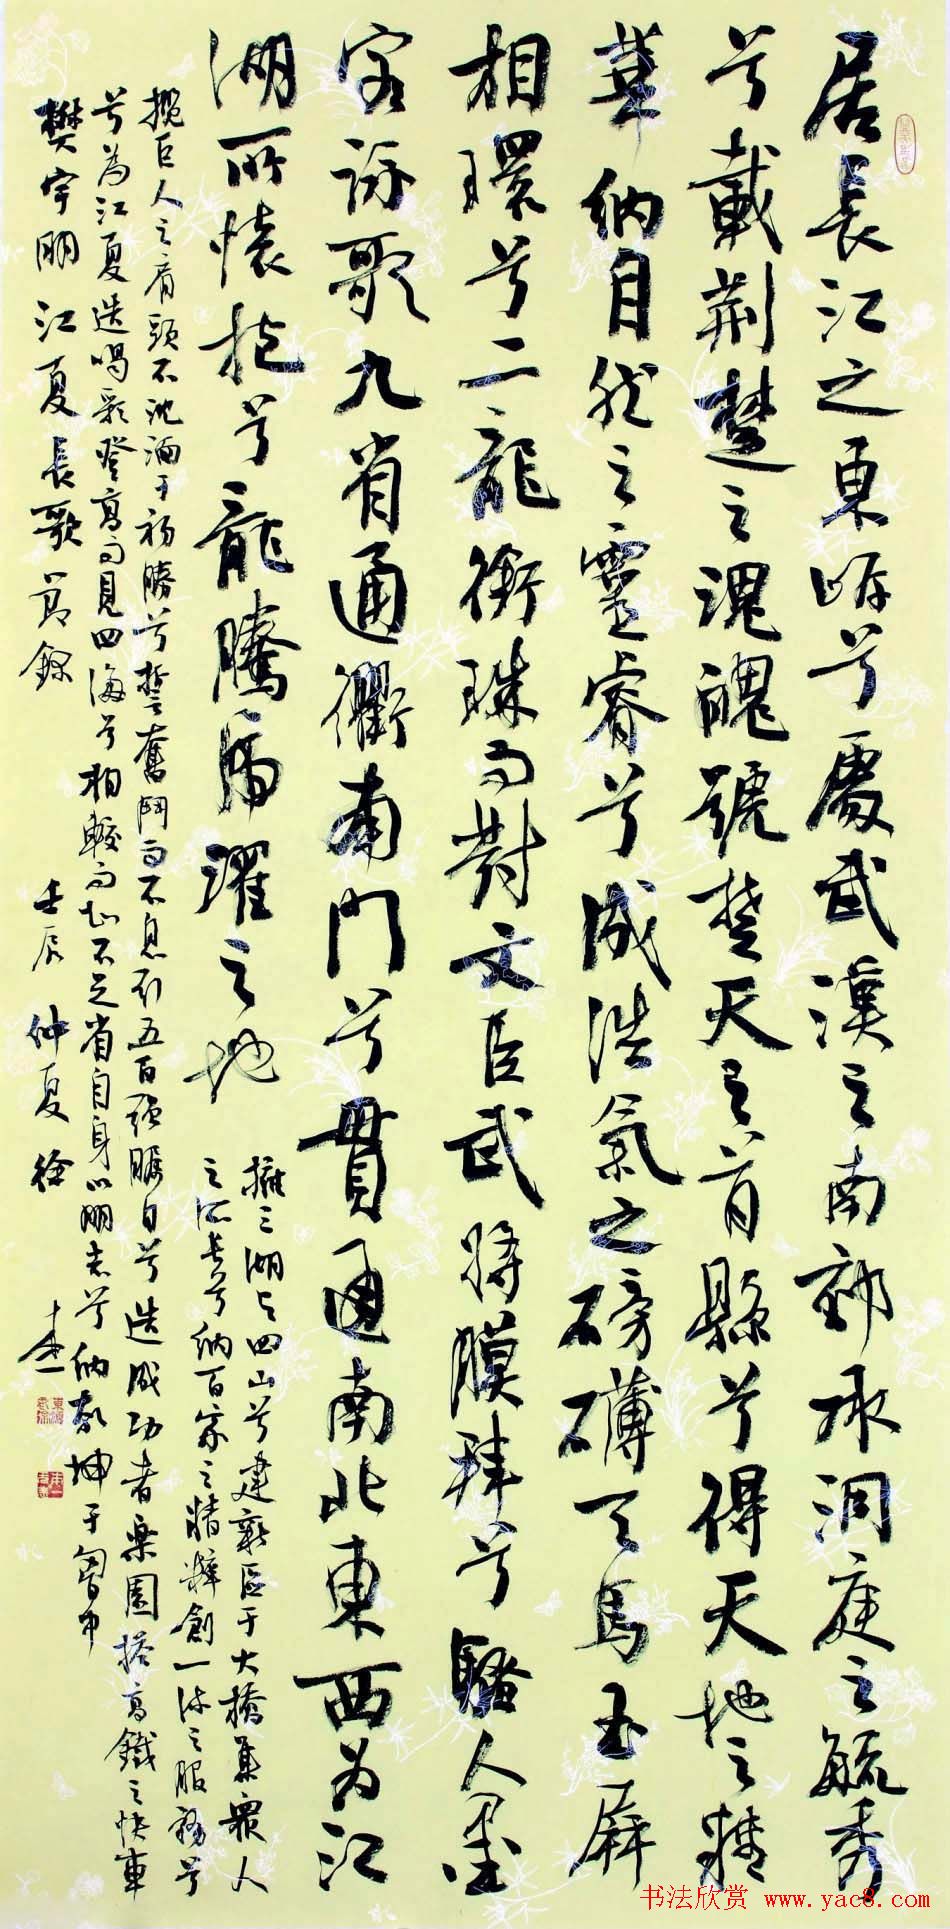 居長江之東岸兮處武漢之南郊承洞庭之毓秀
兮載荆楚之瑰魄號楚天之首縣兮得天地之精
華納自然之靈睿兮成浩氣之磅礴天馬玉屏
相環兮二龍銜珠而對文臣武將膜拜兮騷人墨
客詠歌九省通衢南門兮貫通南北東西為江
湖所懷抱兮龍騰虎躍之地
擁三湖与四山兮建新區于大橋集衆人
之所長兮納百家之精粹創一流之服務兮
攬巨人之肩頭不沈湎于初勝兮誓奮鬥而不息列五百强矚目兮造成功者樂園搭高鐵之快車
兮為江夏迭喝彩登高而見四海兮相較而知不足省自身以明志兮納乾坤于胸中
樊宇朋江夏長歌節錄 壬辰仲夏徐
书法欣赏 www.yac8.com